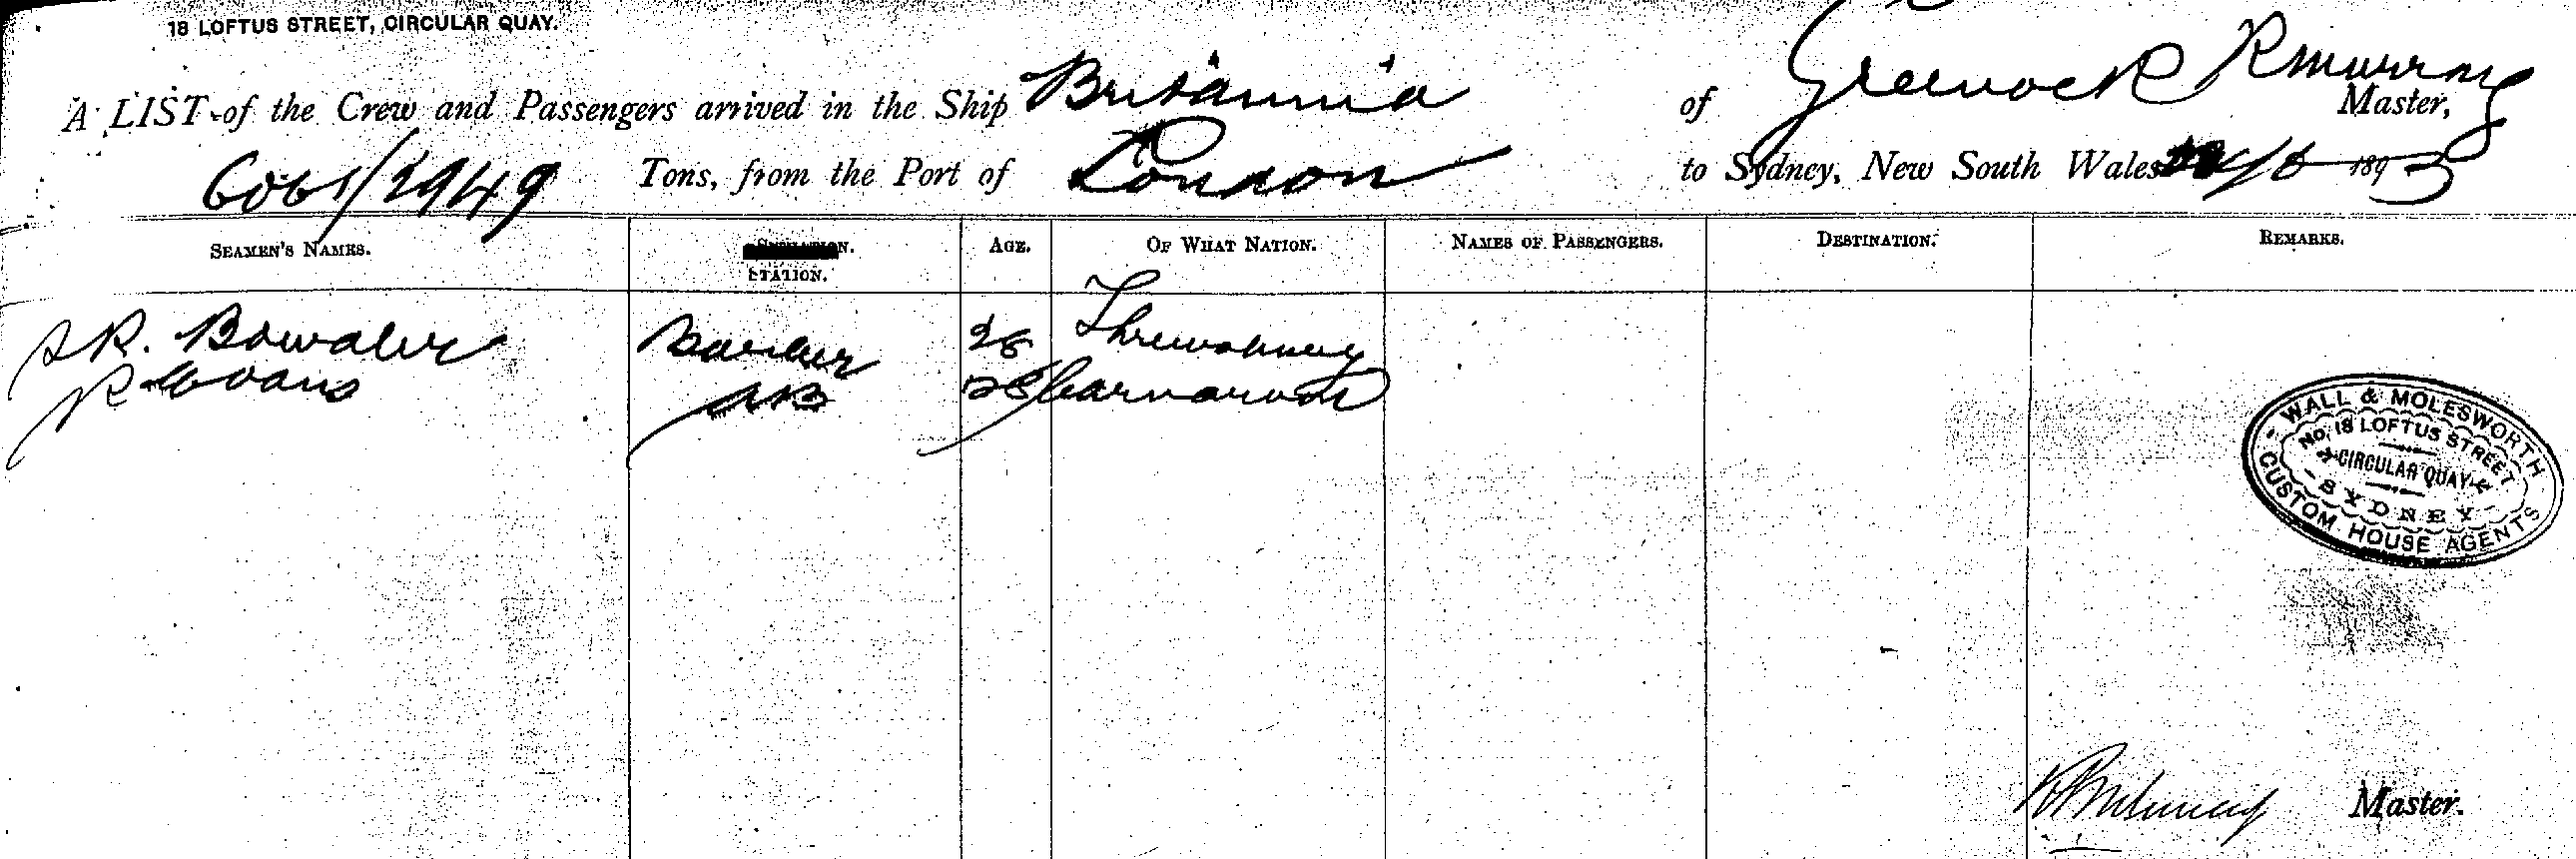 18 LOFTUS STREET, CIRCULAR QUAY.
A LIST of the Crew and Passengers arrived in the Ship Britannia of Greenock R Murray Master,
6061/2949 Tons, from the Port of London to Sydney, New South Wales 1893
SEAMEN'S NAMES. STATION. AGE. OF WHAT NATION. NAMES OF PASSENGERS. DESTINATION. REMARKS.
S R. Bowdler Barber 26 Shrewsbury
R Evans AB 28 Carnarvon
WALL & MOLESWORTH
No. 18 LOFTUS STREET
CIRCULAR QUAY
SYDNEY
CUSTOM HOUSE AGENTS
Master.